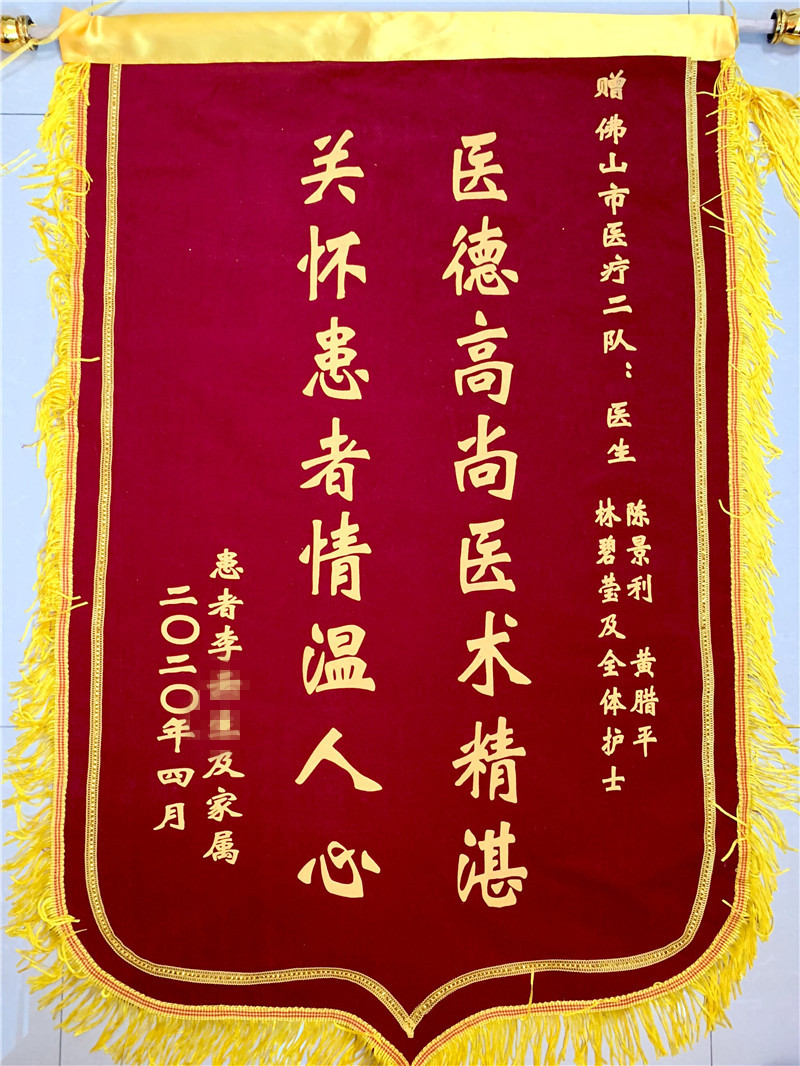 赠佛山市医疗二队：医生
陈景利 黄腊平
林碧莹及全体护士
医德高尚医术精湛
关怀患者情温人心
患者李及家属
二〇二〇年四月